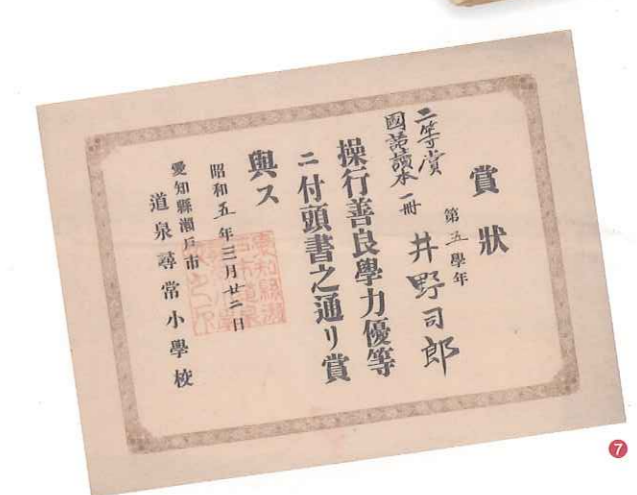 賞狀
第五學年
井野司郎
二等賞
國語讀本一冊
操行善良學力優等
ニ付頭書之通リ賞
與ス
昭和五年三月廿二日
愛知縣瀬戸市
道泉尋常小學校
7